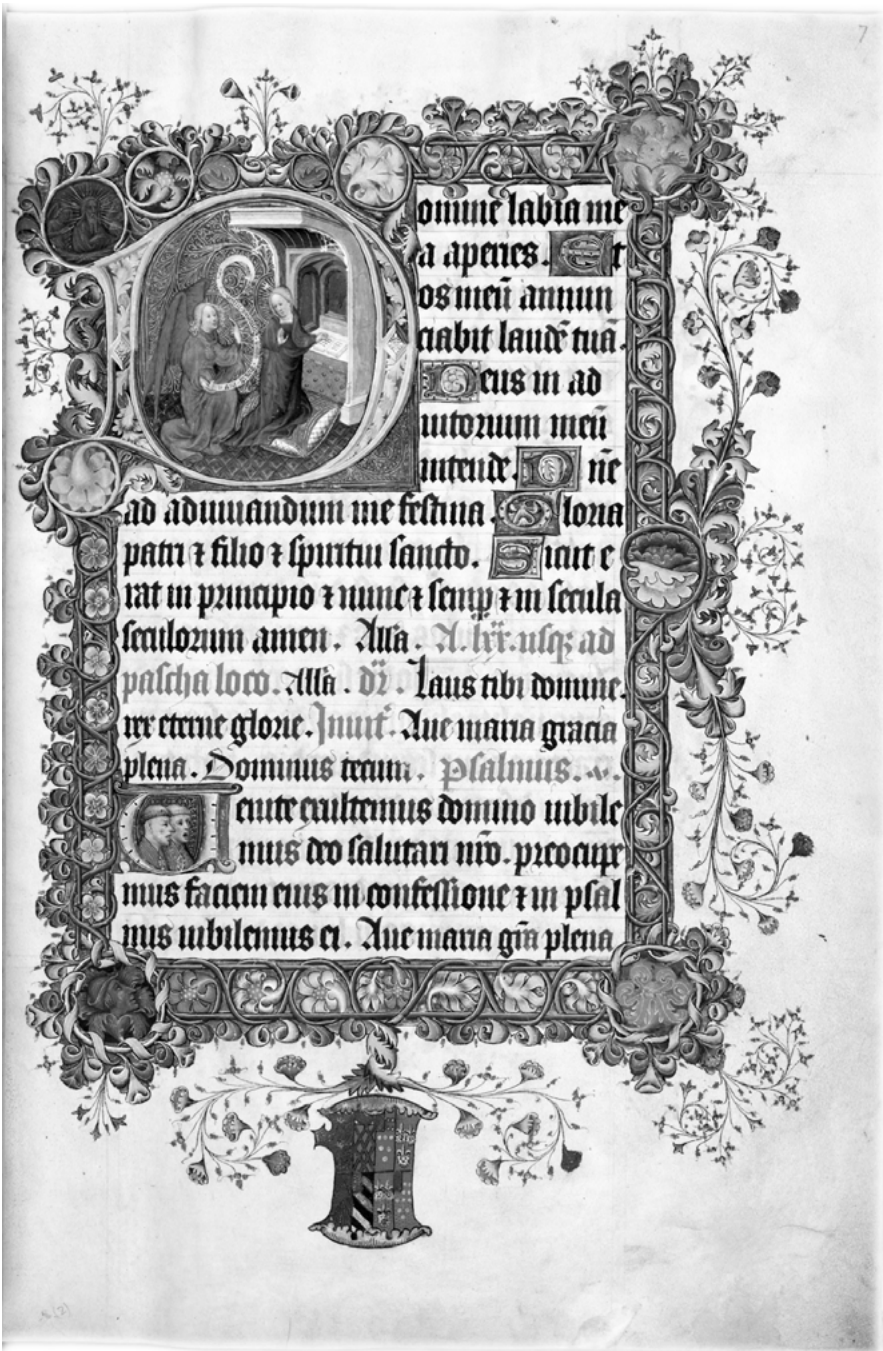 7
Domine labia me
a aperies. Et
os meū annun
ciabit laudē tuā.
Deus in ad
iutorium meū
intende. Dne
ad adiuuandum me festina. Gloria
patri ⁊ filio ⁊ spiritui sancto. Sicut e
rat in principio ⁊ nunc ⁊ semꝑ ⁊ in secula
seculorum amen. Alla. A. lxx. usqꝫ ad
pascha loco. Alla. dr̄. Laus tibi domine.
rex eterne glorie. Inuit̄. Aue maria gracia
plena. Dominus tecum. Psalmus.
Uenite exultemus domino iubile
mus deo salutari nr̄o. preocupe
mus faciem eius in confessione ⁊ in psal
mis iubilemus ei. Aue maria grā plena